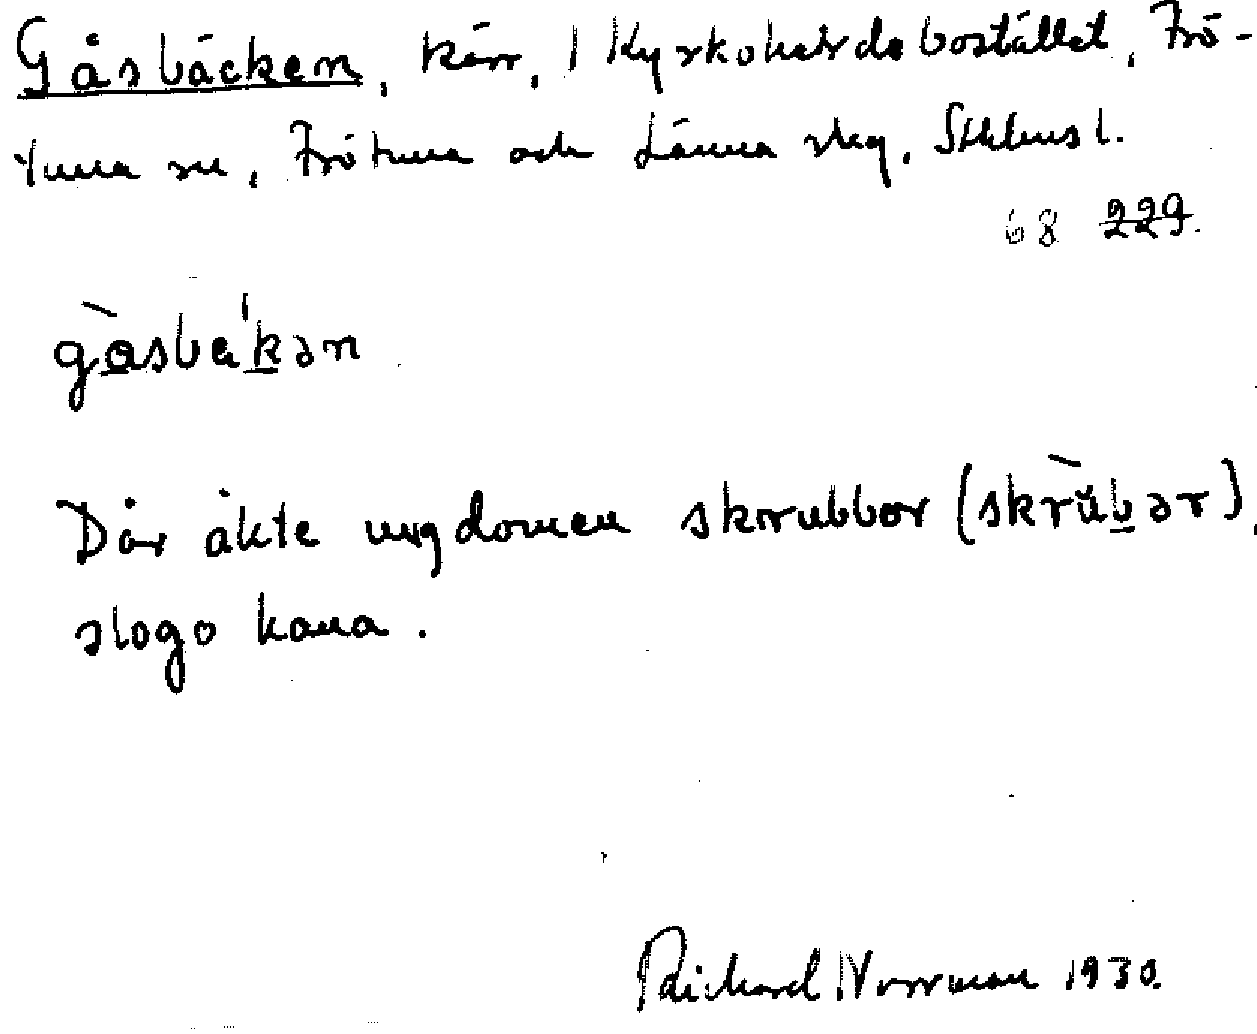 Gåsbäcken, kärr, 1 Kyrkoherdebostället, Frö-
tuna sn, Frötuna och Länna skg, Sthlms l.
68 229.
gåsbäkən
Där åkte ungdomen skrubbor (skrubər),
slogo kana.
Richard Norrman 1930.